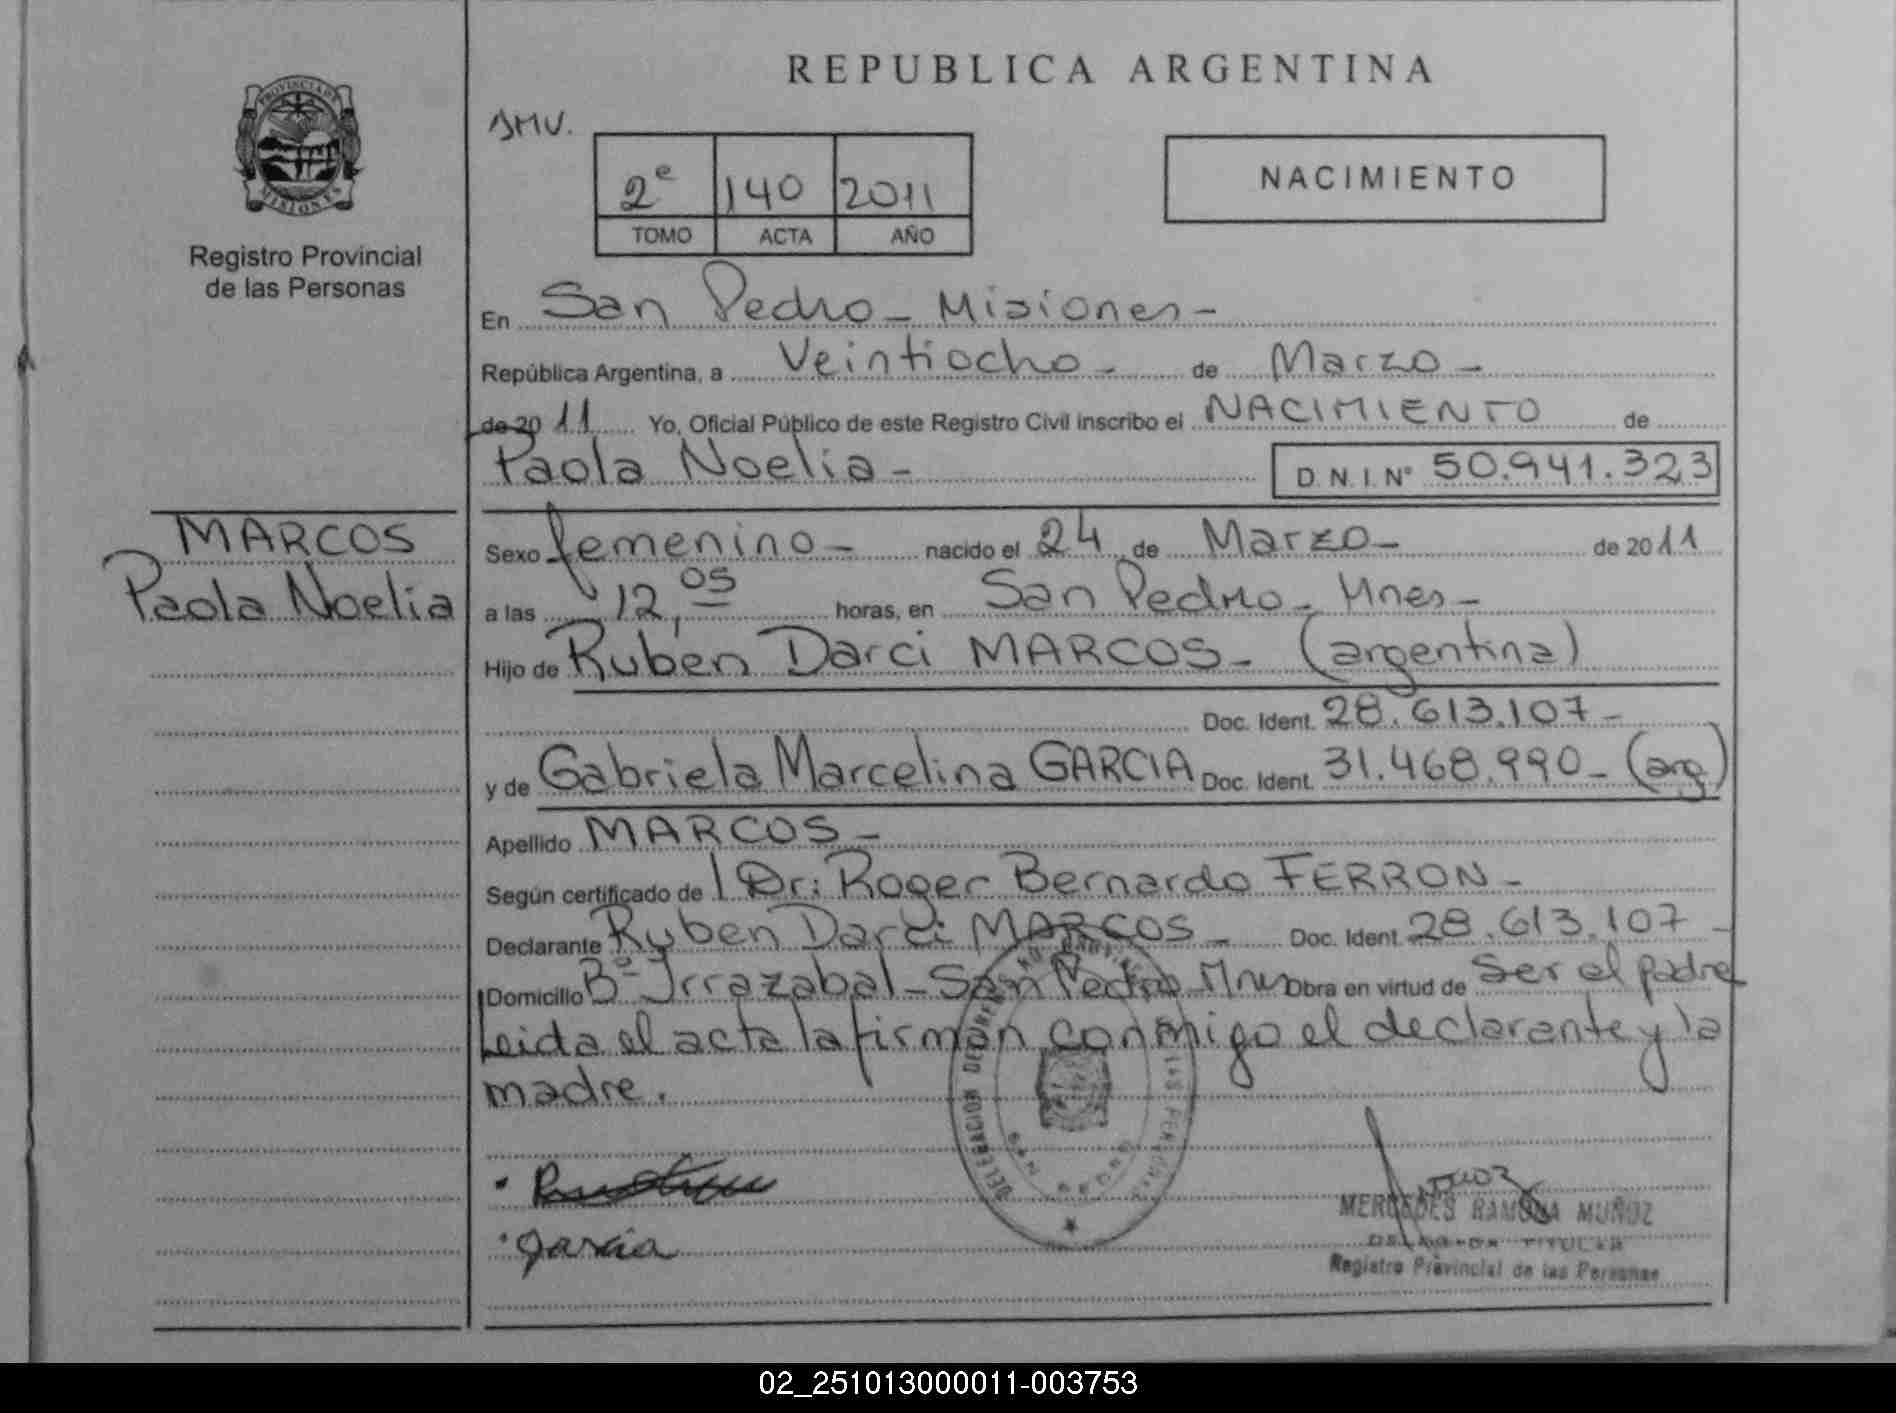 REPUBLICA ARGENTINA
PROVINCIA DE
MISIONES
Registro Provincial
de las Personas
JMV.
2º 140 2011
TOMO ACTA AÑO
NACIMIENTO
En San Pedro - Misiones -
República Argentina, a Veintiocho - de Marzo -
de 20 11 Yo, Oficial Público de este Registro Civil inscribo el NACIMIENTO de
Paola Noelia - D.N.I. Nº 50.941.323
MARCOS
Paola Noelia
Sexo femenino - nacido el 24 de Marzo - de 2011
a las 12,05 horas, en San Pedro - Mnes -
Hijo de Rubén Darci MARCOS - (argentina)
Doc. Ident. 28.613.107 -
y de Gabriela Marcelina GARCIA Doc. Ident. 31.468.990 - (arg.)
Apellido MARCOS -
Según certificado de Dr: Roger Bernardo FERRON -
Declarante Ruben Darci MARCOS - Doc. Ident. 28.613.107 -
Domicilio Bº Irrazabal - San Pedro - Mnes Obra en virtud de Ser el padre
Leida el acta la firman conmigo el declarante y la
madre.
DELEGACION
Garcia
MERCEDES RAMONA MUÑOZ
DELEGADA TITULAR
Registro Provincial de las Personas
02_251013000011-003753